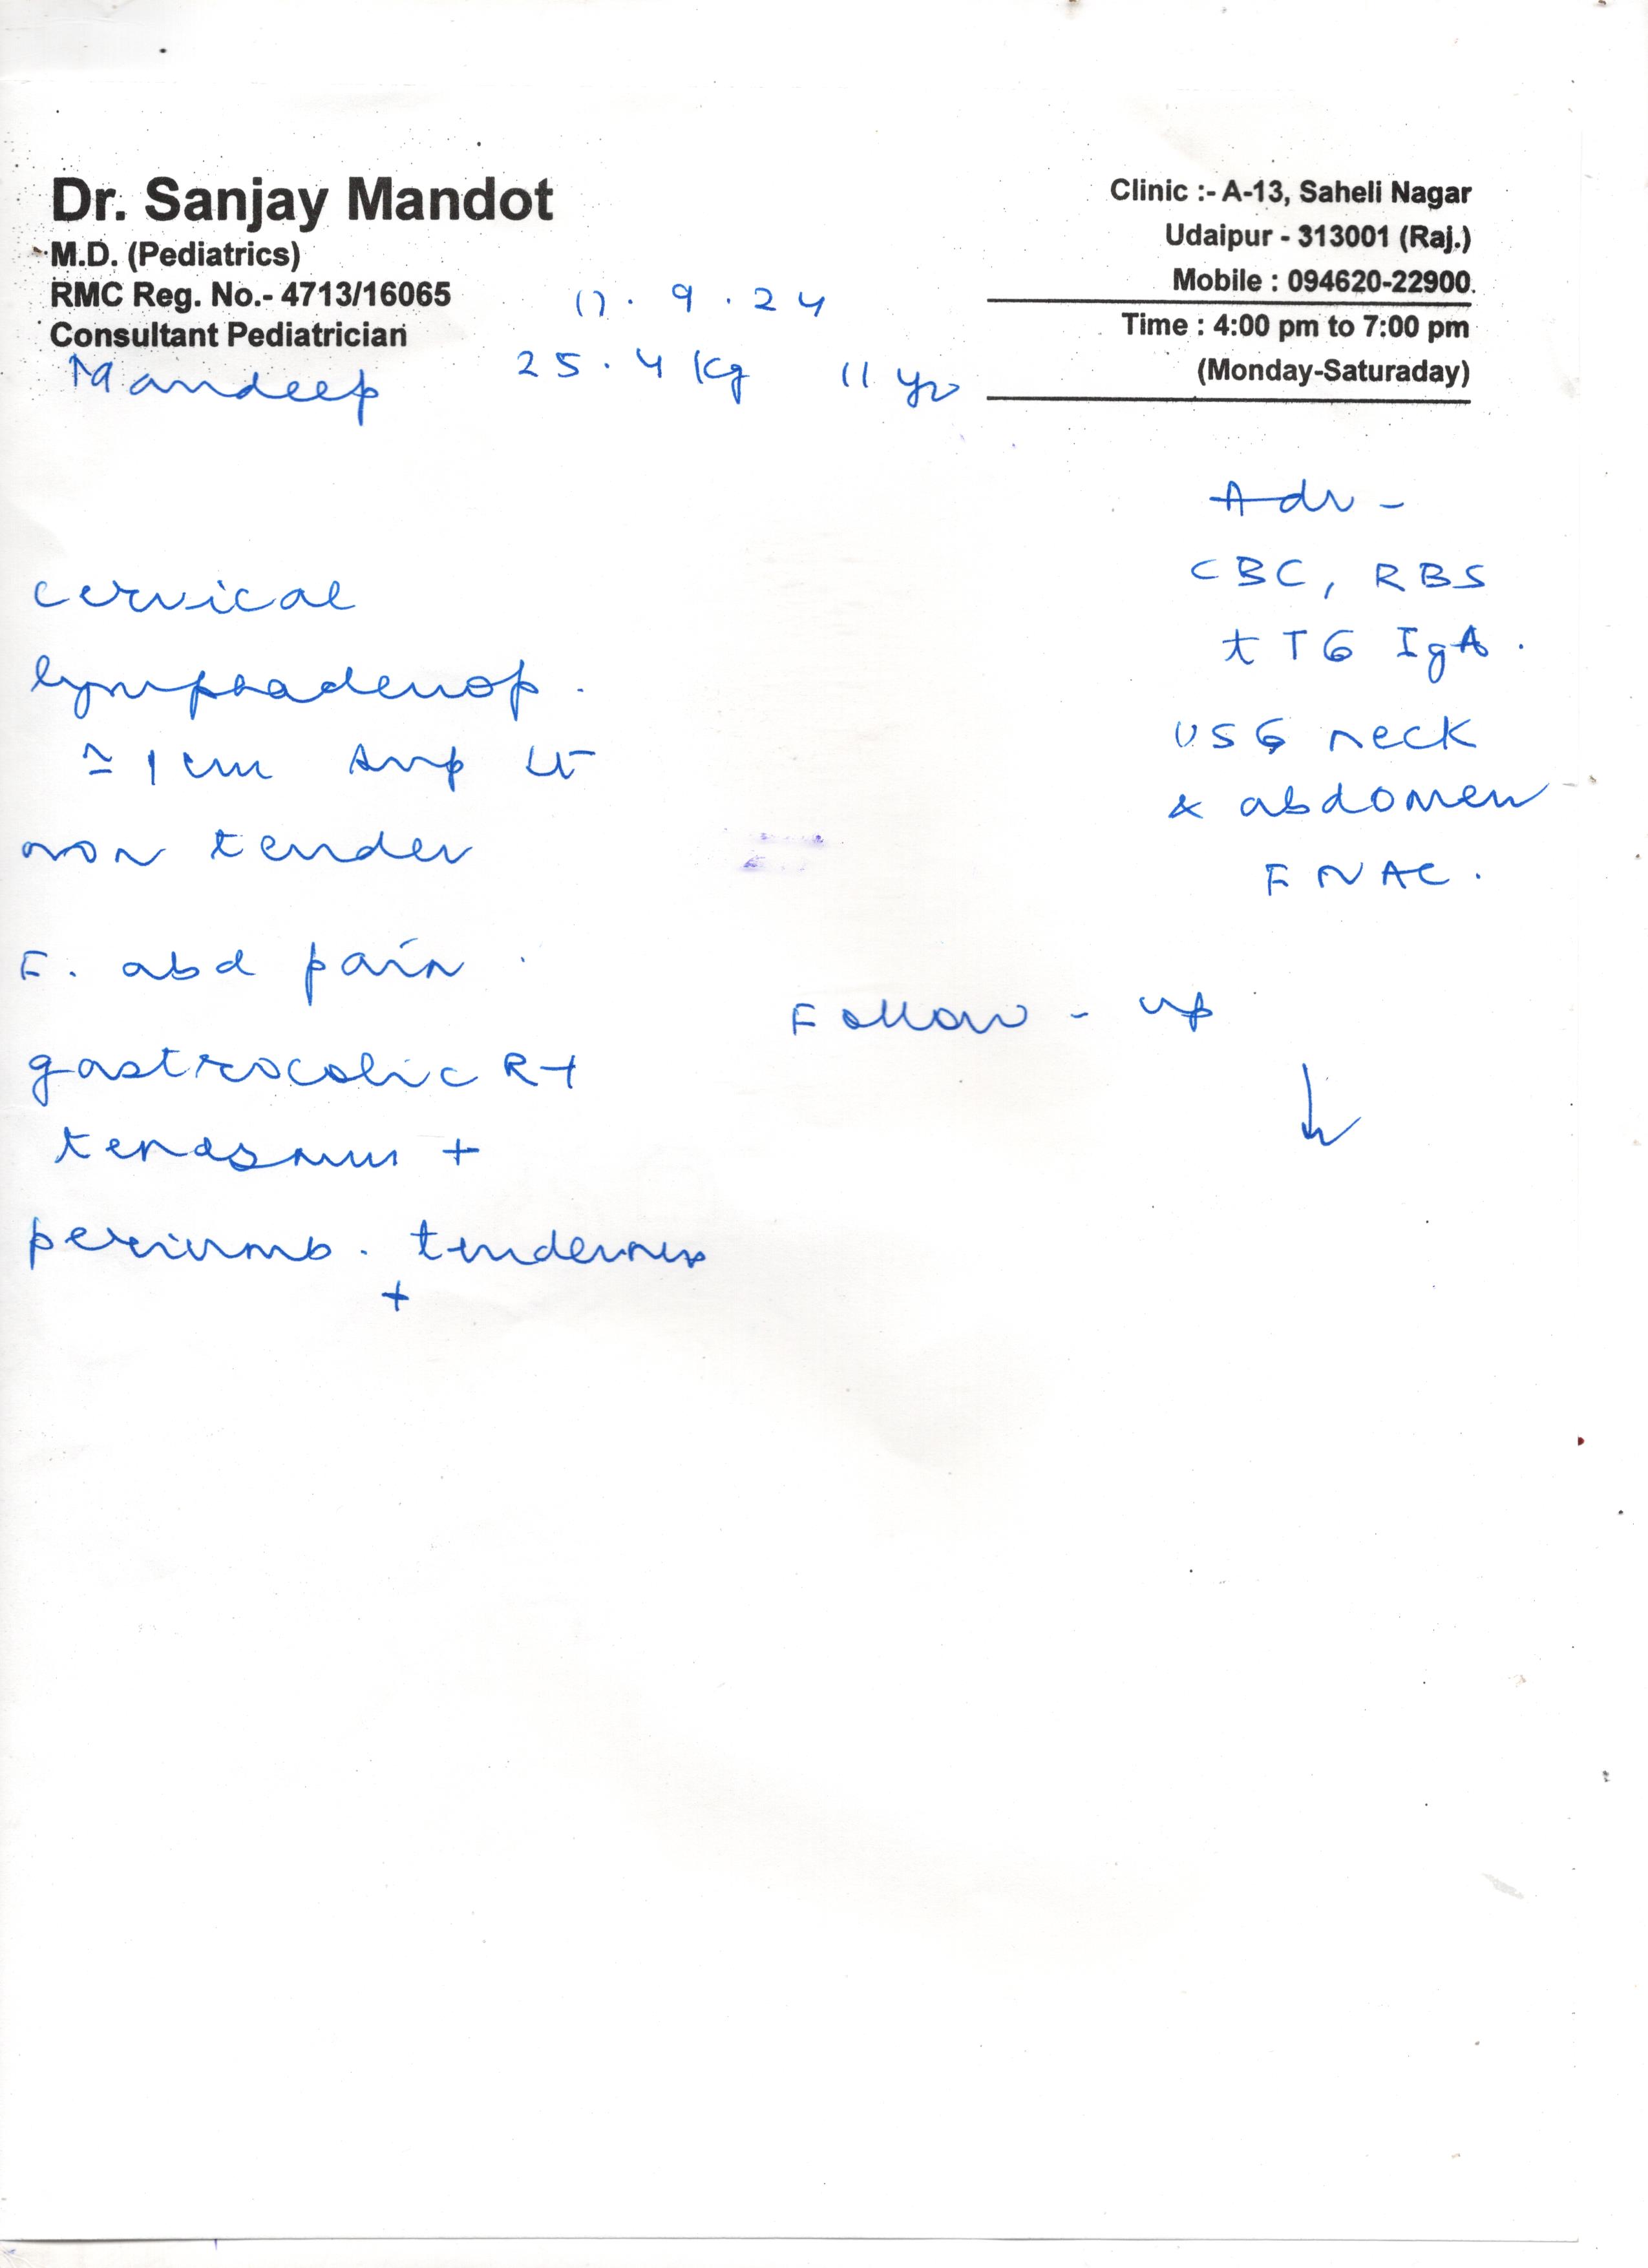 Dr. Sanjay Mandot
M.D. (Pediatrics)
RMC Reg. No.- 4713/16065
Consultant Pediatrician
Clinic :- A-13, Saheli Nagar
Udaipur - 313001 (Raj.)
Mobile : 094620-22900
Time : 4:00 pm to 7:00 pm
(Monday-Saturaday)
17.9.24
Mandeep 25.4 kg 11 yr
cervical
lymphadenop.
≃ 1 cm Lt
non tender
F. abd pain.
gastrocolic R+
tenasmus +
periumb. tenderness
+
Adv -
CBC, RBS
tTG IgA.
USG neck
& abdomen
FNAC.
Follow-up